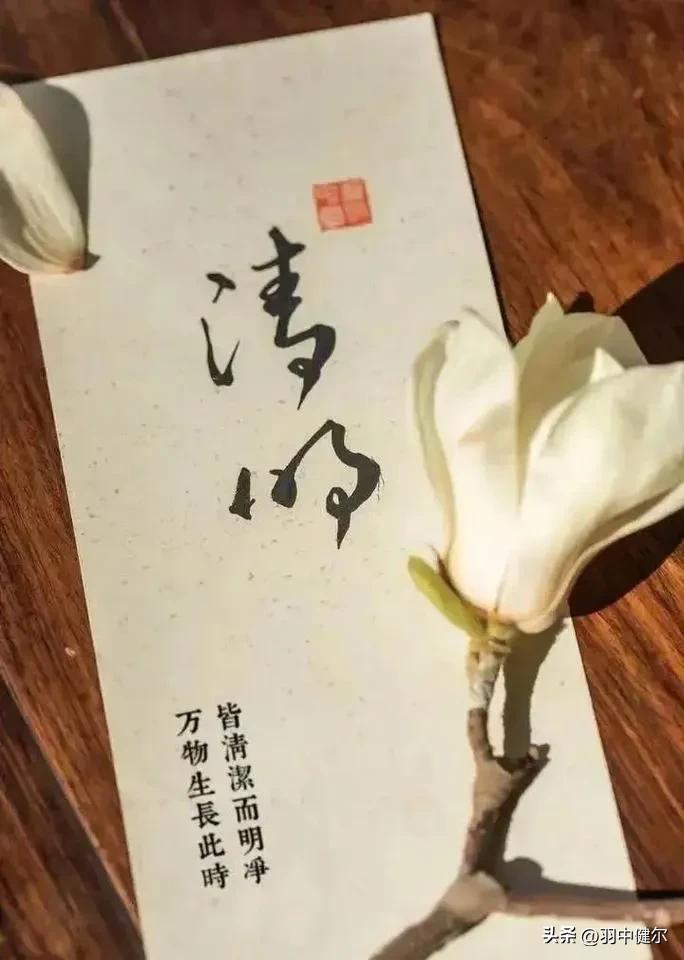 清明
万物生長此時
皆清潔而明凈
头条 @羽中健尔